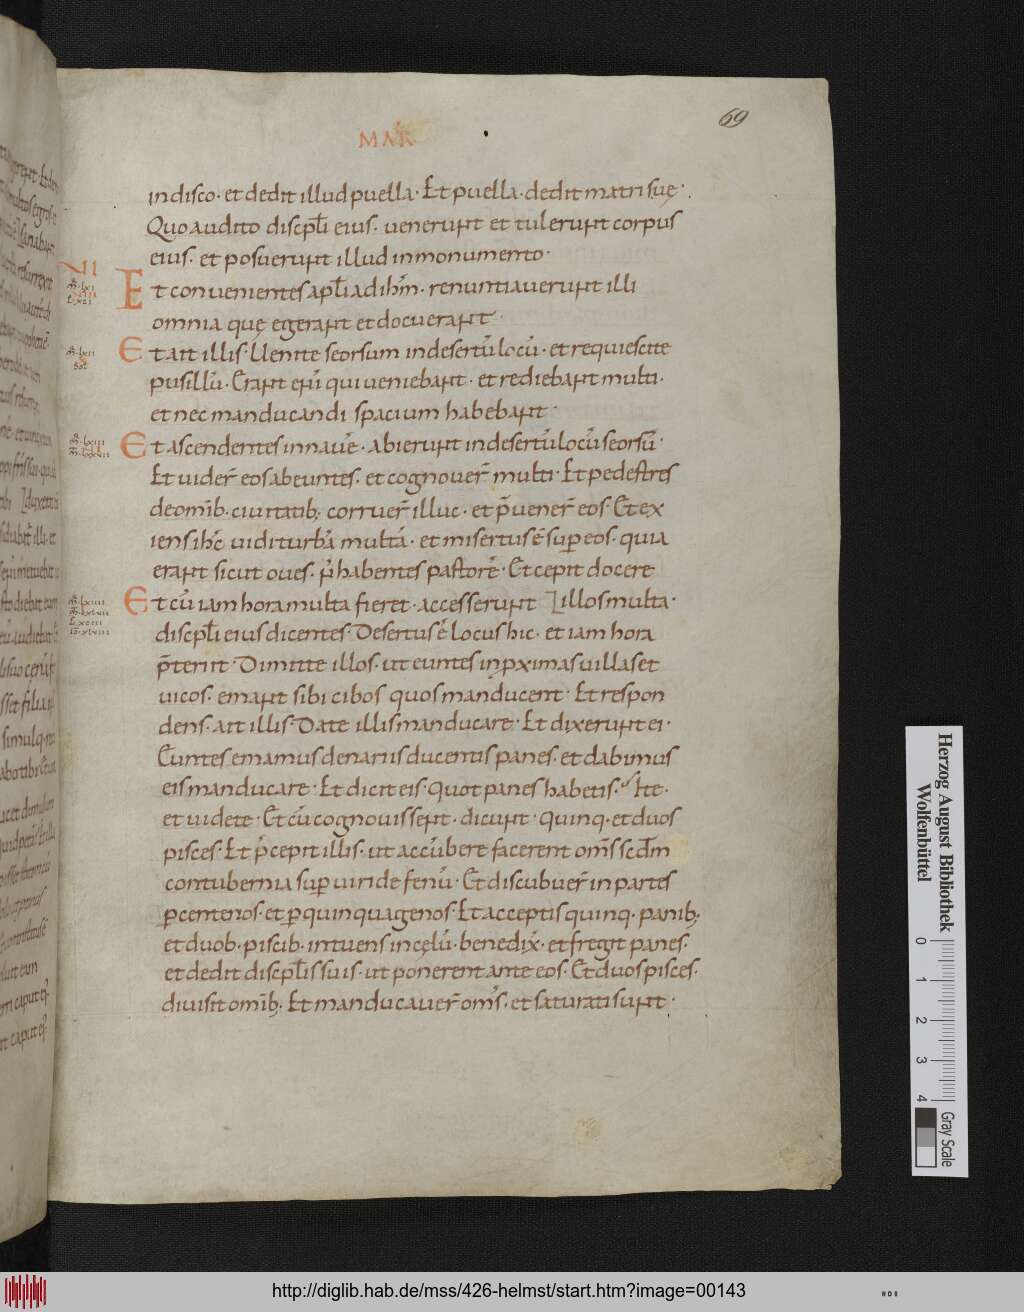 MAR
69
in disco · et dedit illud puella · Et puella · dedit matri suę ·
Quo audito discpłi eius · venerunt et tulerunt corpus
eius · et posuerunt illud in monumento ·
VII
Et convenientes apłi ad ihm̄ · renuntiaverunt illi
omnia quę egerant et docuerant ·
Et ait illis · Venite seorsum in desertū locū · et requiescite
pusillū · Erant eni qui veniebant · et rediebant multi ·
et nec manducandi spacium habebant ·
Et ascendentes in navē · abierunt in desertū locū seorsū ·
Et vider̄ eos abeuntes · et cognover̄ multi · Et pedestres
de omīb · civitatib; corruer̄ illuc · et p̄vener̄ eos · Et ex
iens ihc̄ vidit urbā multā · et misertus ē sup eos · quia
erant sicut oves · n̄ habentes pastorē · Et cepit docere
Et cū iam hora multa fieret · accesserunt Illos multa ·
discpłi eius dicentes · Desertus ē locus hic · et iam hora
p̄teriit · Dimitte illos · ut euntes in pximas villas et
vicos · emant sibi cibos quos manducent · Et respon
dens · ait illis · Date illis manducare · Et dixerunt ei ·
Euntes emamus denariis ducentis panes · et dabimus
eis manducare · Et dicit eis · Quot panes habetis · Ite ·
et videte · Et cū cognovissent · dicunt · Quinq · et duos
pisces · Et p̄cepit illis · ut accūbere facerent om̄s scdm̄
contubernia sup viride fenū · Et discubuer̄ in partes
p centenos · et p quinquagenos · Et acceptis quinq · panib;
et duob · piscib · intuens in cęlū · benedix̄ · et fregit panes ·
et dedit discpłis suis · ut ponerent ante eos · Et duos pisces ·
divisit omīb; Et manducaver̄ om̄s · et saturati sunt ·
Herzog August Bibliothek
Wolfenbüttel
0 1 2 3 4
Gray Scale
http://diglib.hab.de/mss/426-helmst/start.htm?image=00143